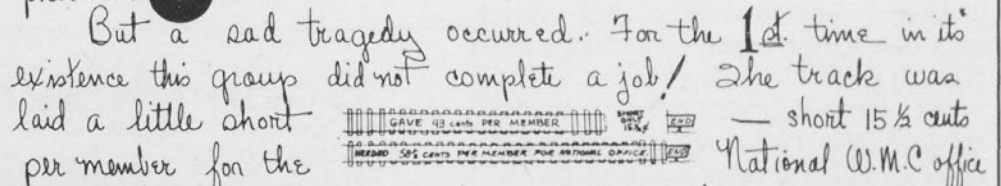 But a sad tragedy occurred. For the 1st. time in its
existence this group did not complete a job! The track was
laid a little short GAVE 43 cents PER MEMBER SHORT ONLY 15½¢ END — short 15½ cents
per member for the NEEDED 58½ CENTS PER MEMBER FOR NATIONAL OFFICE END National W.M.C office